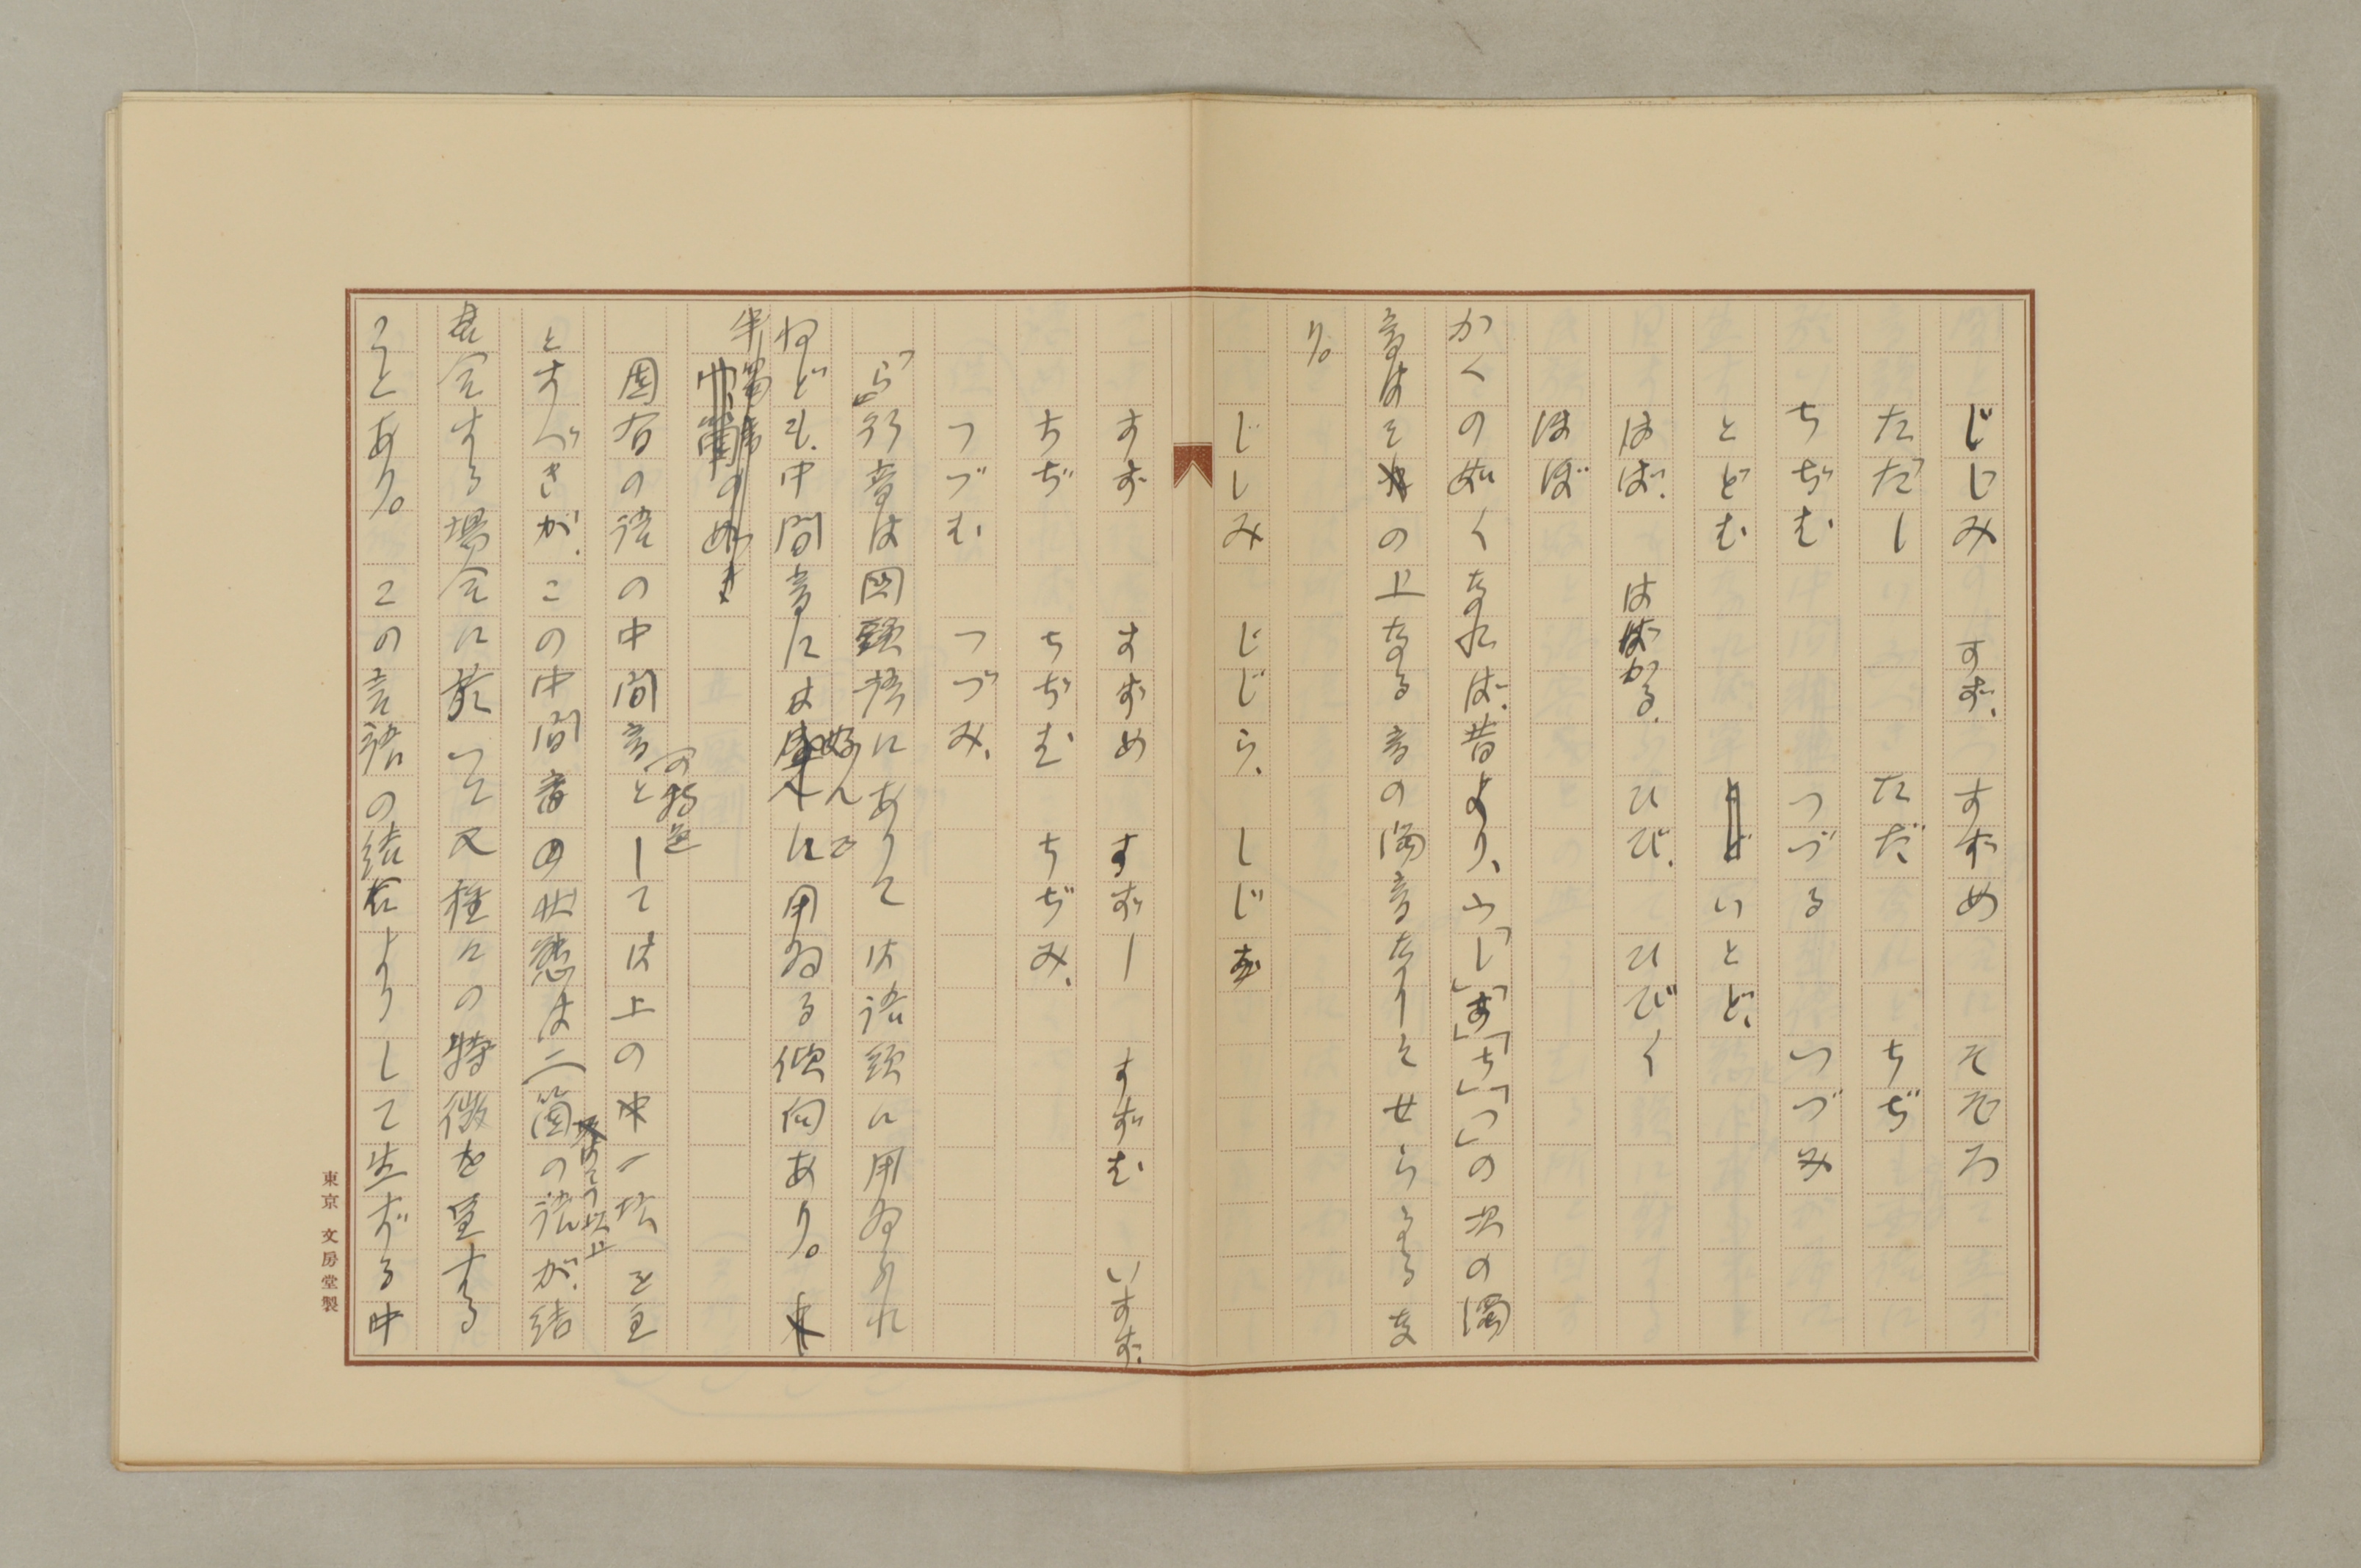 じじみ　すず、　すずめ　そぞろ
ただし　ただ　ちぢ
ちぢむ　つづる　つづみ
とどむ　いとど、
はば、　はばかる、　ひび、　ひびく
ほぼ
かくの如くなれば、昔より、「し」「す」「ち」「つ」の次の濁
音はその上なる音の濁音なりとせらるる
り。
じしみ　じじら、　しじま
すず　すずめ　すずし　すずむ　いすず、
ちぢ　ちぢむ　ちぢみ、
つづむ　つづみ、
「ら」行音は固有語にありては語頭に用ゐられ
ねども、中間音には好んで用ゐる傾向あり。
半濁音
固有の語の中間音としては上の一点を
の特色
とすべきが、この中間音の状態は二箇の語が、結
合する場合に於いて又種々の特徴を呈する
ことあり。この言語の結合よりして生ずる中
東京　文房堂製